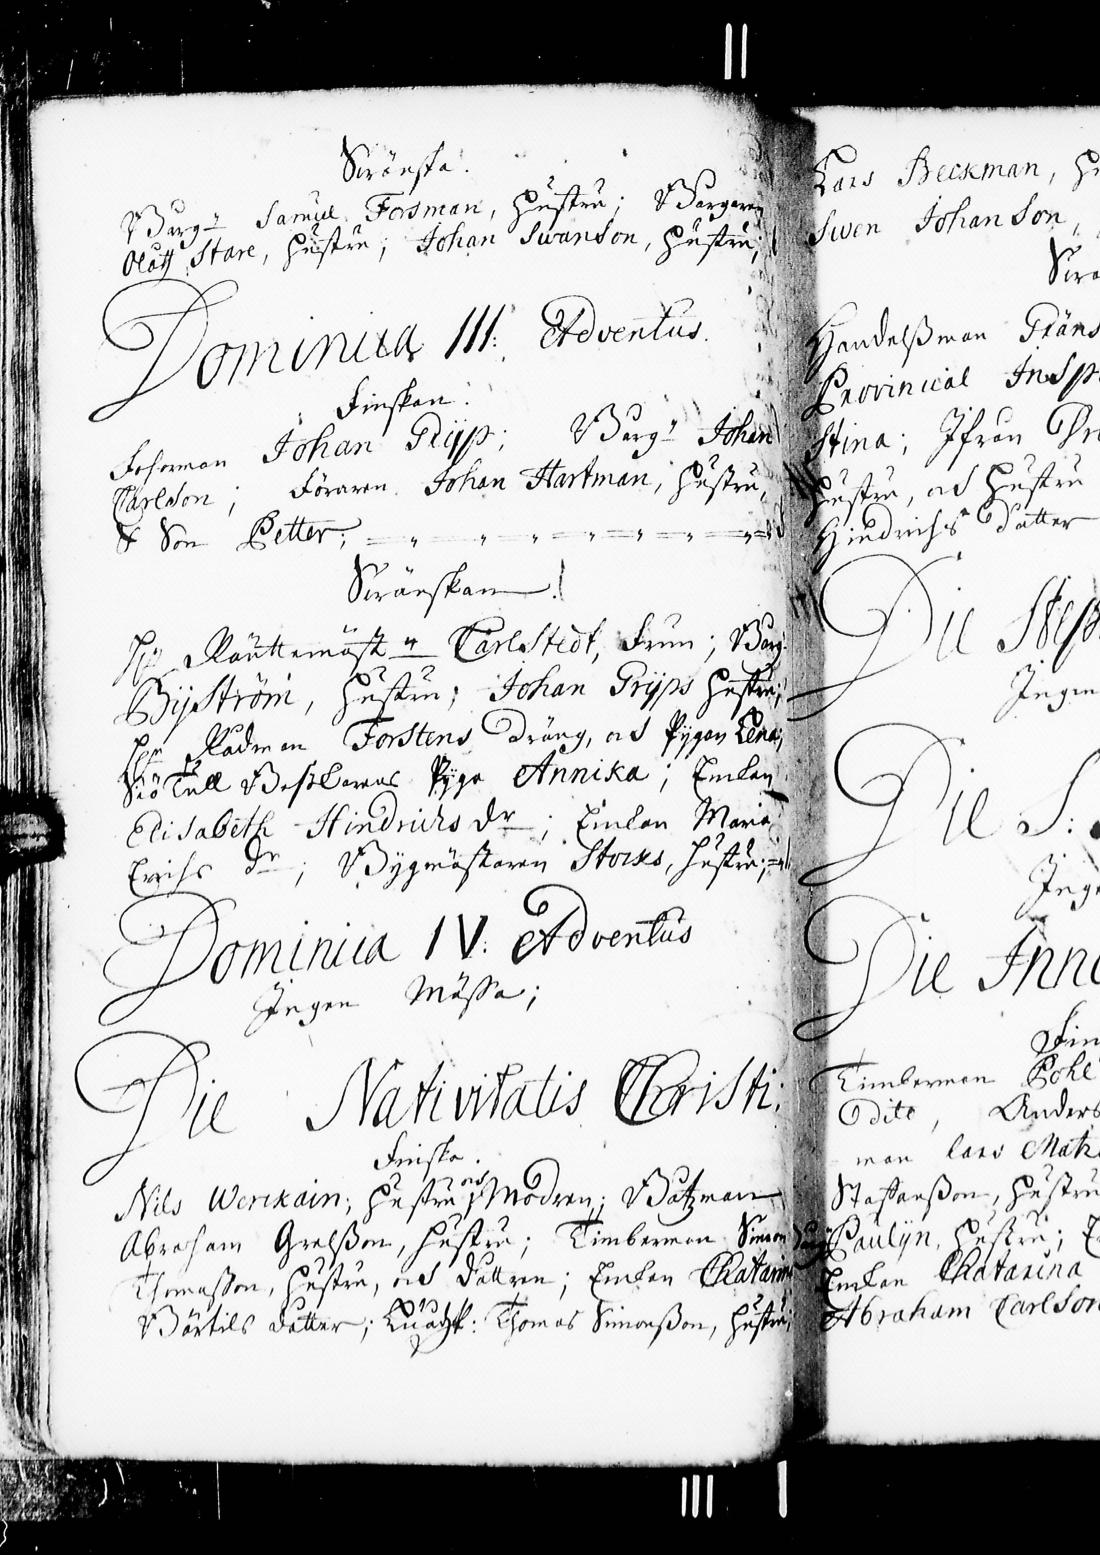 Swänska.
Borg:n Samuel Forsman, Hustru; Borgaren
Olaff Stare, Hustru; Johan Swanson, Hustru;
Dominica III. Adventus.
Finskan.
Johan Grijp; Borg:n Johan
Carlson; Föraren Johan Hartman, Hustru,
& Son Petter;
Swänskan.
Carlstedt, Frun; Borg:
Bijström, Hustru; Johan Grijps Hustru;
H:r Rådman Forstens Dräng, och Pygan Lena,
Siö Tull Pyga Annika; Enkan
Elisabeth Hindrichs dr; Enkan Maria
Erichs dr; Bygmästaren Storks, Hustru;
Dominica IV. Adventus
Ingen Mässa;
Die Nativitatis Christi.
Finska.
Nils Werckain; Hustru och Modren; Båtzman
Abraham Grelsson, Hustru; Timberman Simon
Thomasson, Hustru, och Dottren; Enkan Chatarina
Bärtils Dotter; Thomas Simonsson, Hustru;
Lars Beckman,
Swen Johanson,
Handelsman Frans
Provincial Insp
Stina; Jfrun
Hustru, och Hustru
Hindrichs Dotter
Die Step
Ingen
Die S:
Inge
Die Inno
Fin
Timberman Pohl
Dito, Anders
man Lars Mats
Staffansson, Hustru
Paulijn, Hustru;
Enkan Chatarina
Abraham Carlson